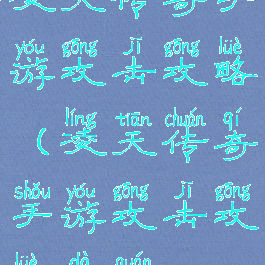 凌天传奇手
yóu gōng jī gōng lüè
游攻击攻略
líng tiān chuán qí
（凌天传奇
shǒu yóu gōng jī gōng
手游攻击攻
lüè dà quán